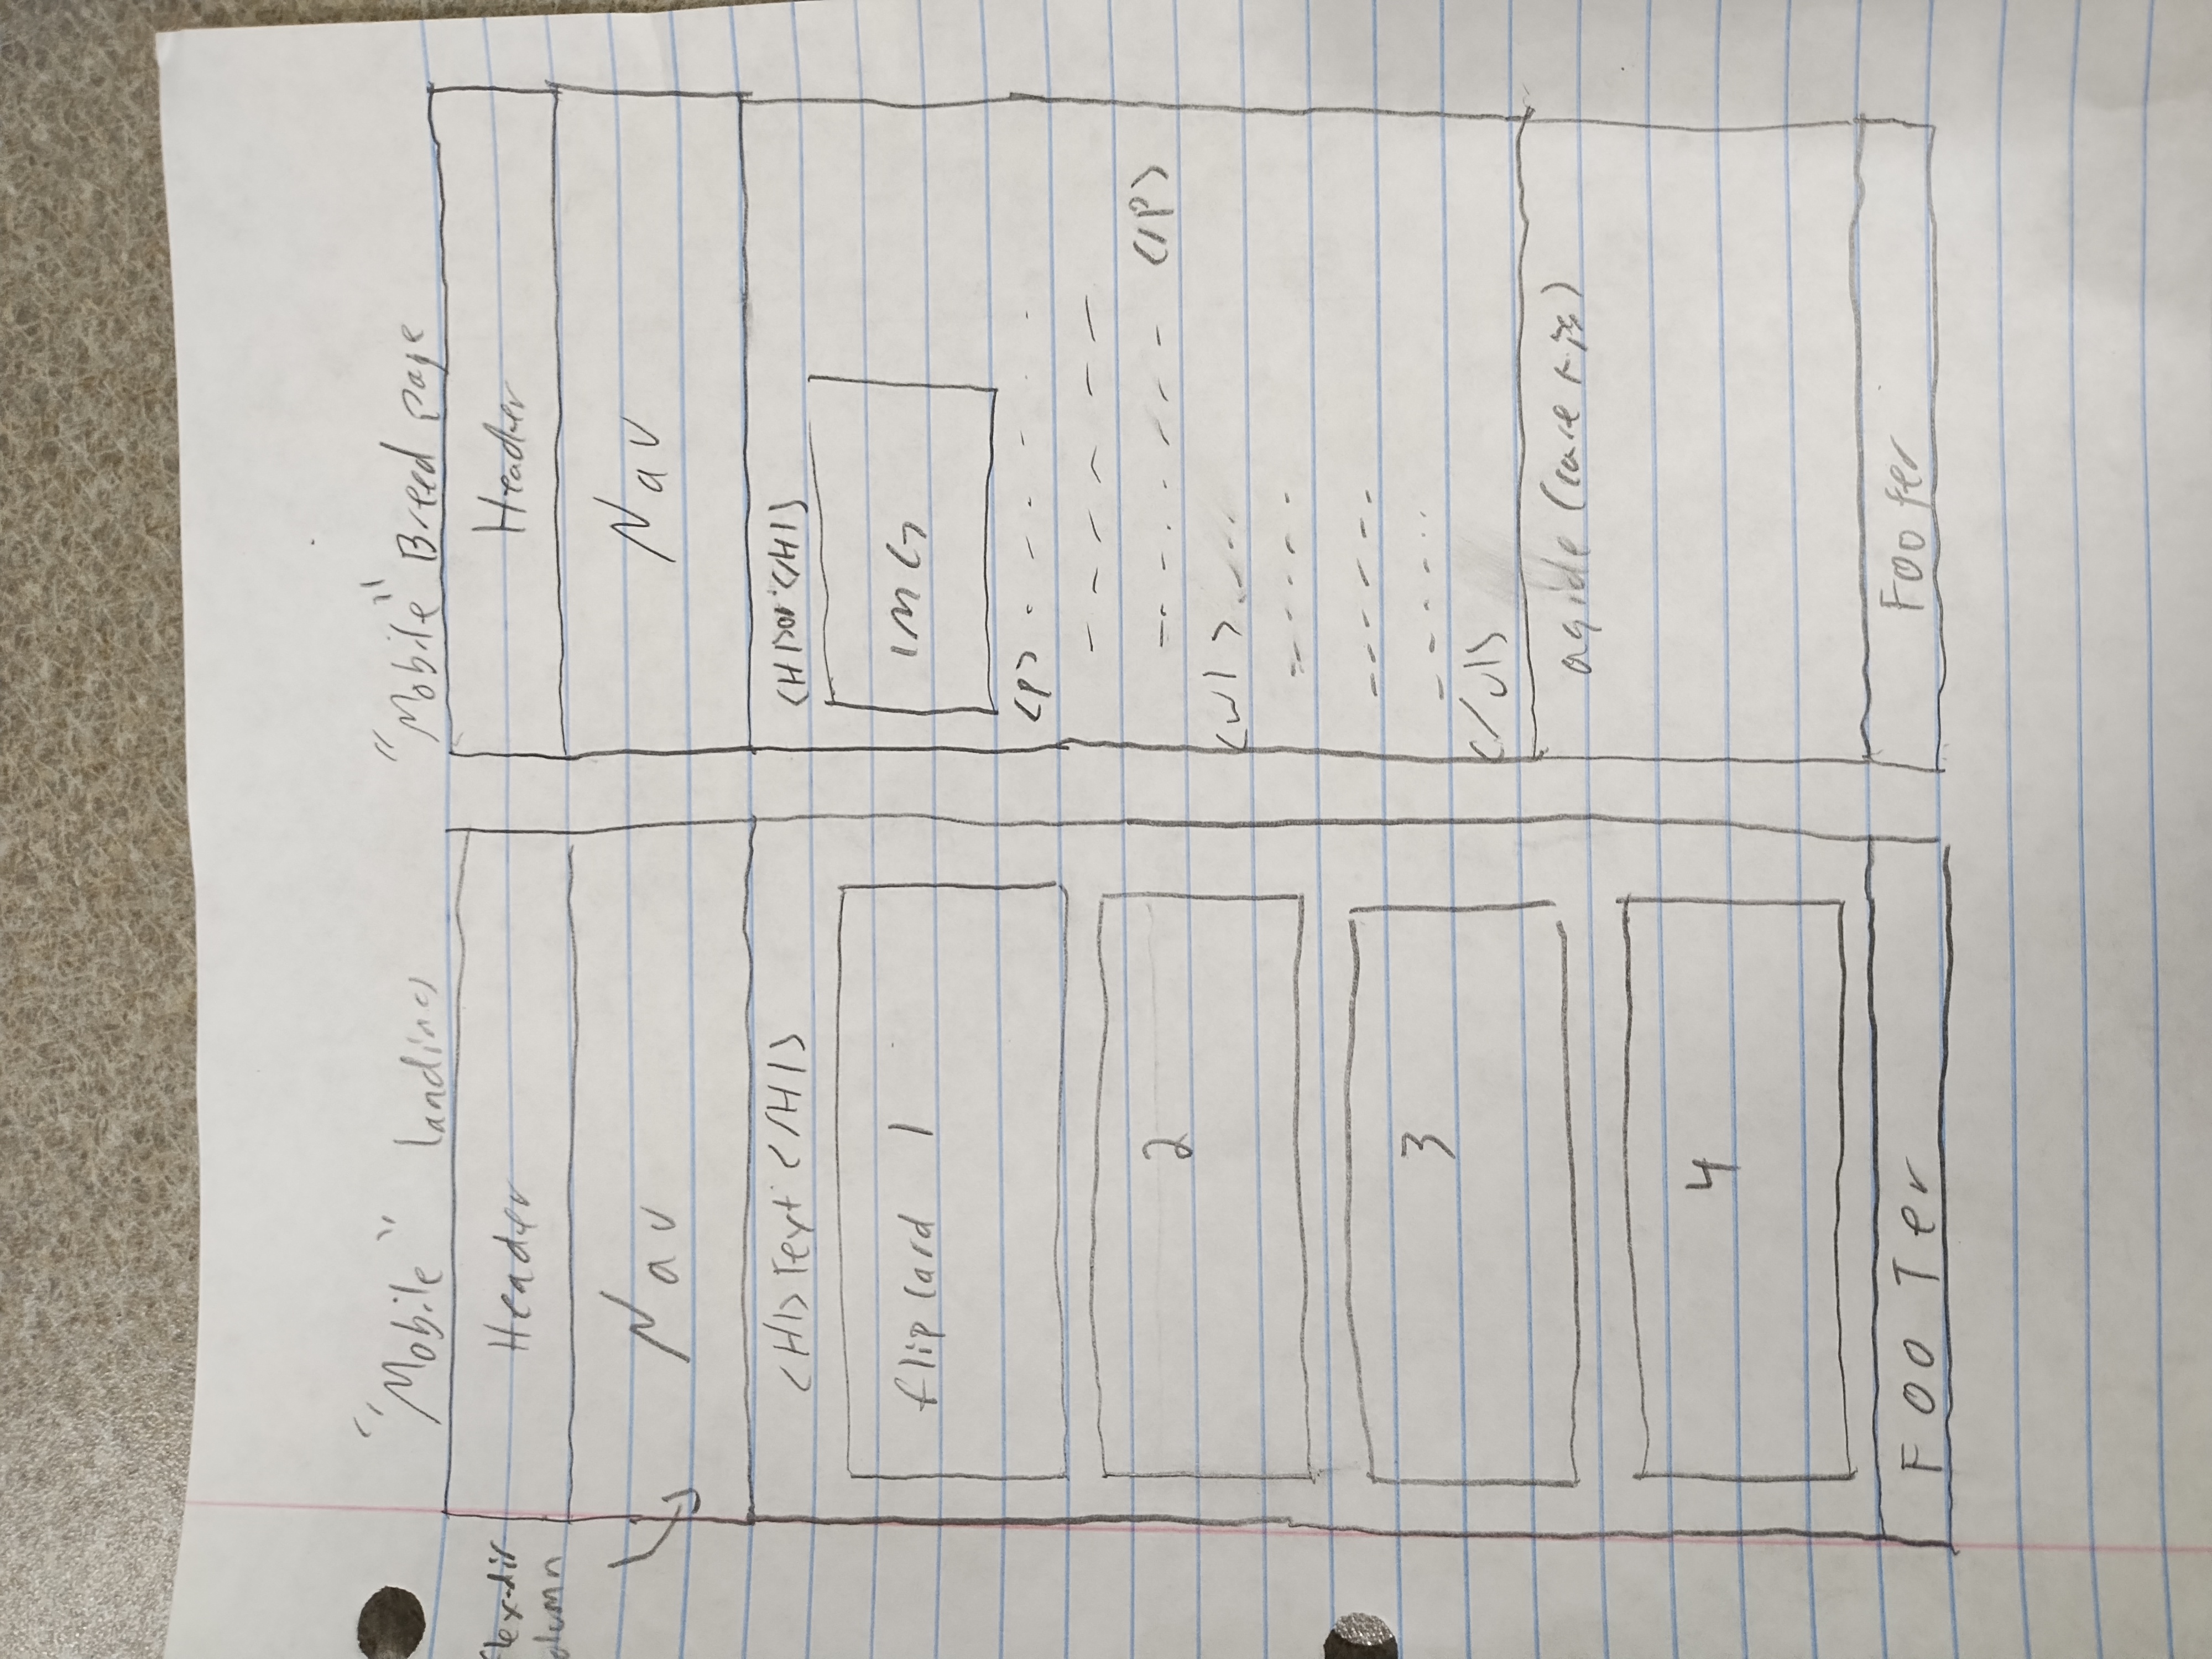 "Mobile" landing
flex-dir
olumn
Header
Nav
<H1>Text</H1>
flip card 1
2
3
4
FOOTer
"Mobile" Breed page
Header
Nav
<H1> </H1>
IMG
<p>
</P>
<ul>
</ul>
aside (care tips)
Footer